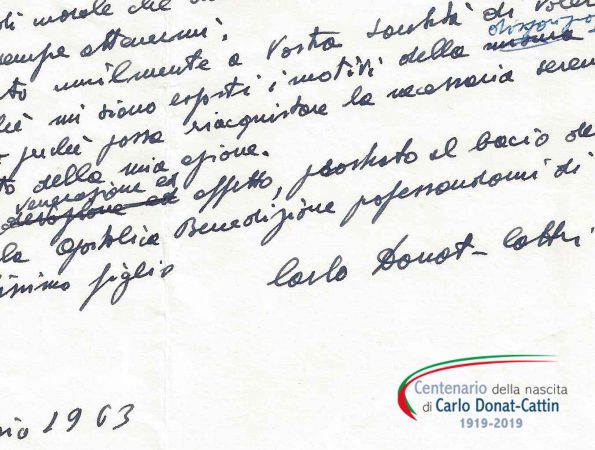 di morale che
sempre attenermi.
umilmente a Vostra Santità di voler
mi siano esposti i motivi della
perché possa riacquistare la necessaria seren
to della mia azione.
venerazione ed
affetto, prostrato al bacio de
la Apostolica Benedizione professandomi di
issimo figlio Carlo Donat-Cattin
io 1963
Centenario della nascita
di Carlo Donat-Cattin
1919-2019